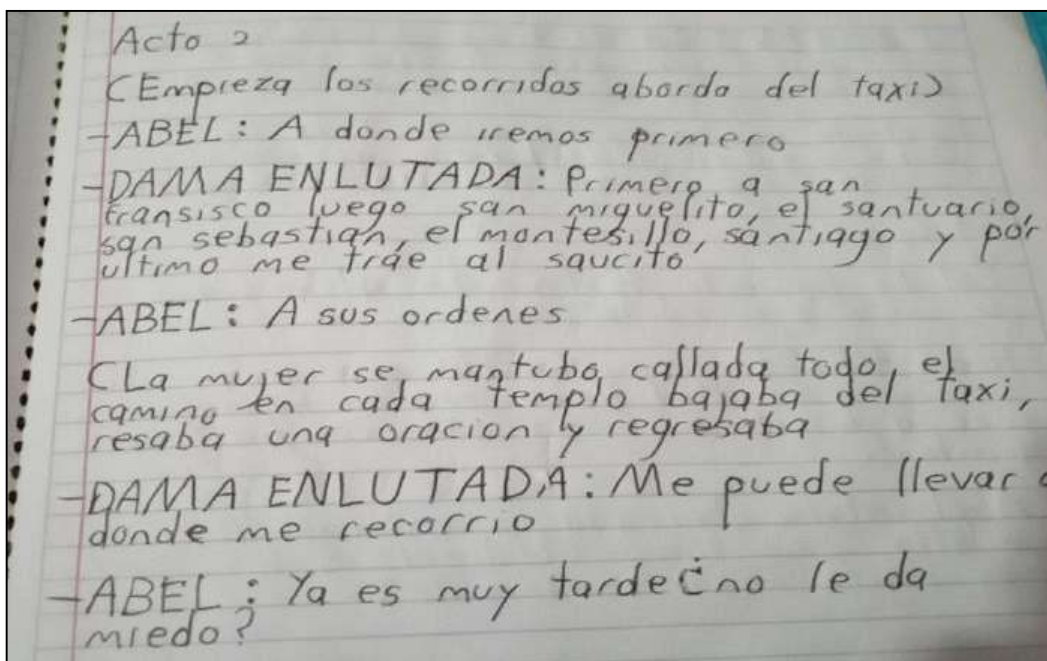 Acto 2
(Empieza los recorridos abordo del taxi)
-ABEL: A donde iremos primero
-DAMA ENLUTADA: Primero, a san
fransisco luego san miguelito, el santuario,
san sebastian, el montesillo, santiago y por
ultimo me trae al saucito
-ABEL: A sus ordenes
(La mujer se mantubo callada todo, el
camino en cada templo bajaba del taxi,
resaba una oracion y regresaba
-DAMA ENLUTADA: Me puede llevar
donde me recorrio
-ABEL: Ya es muy tarde ¿no le da
miedo?